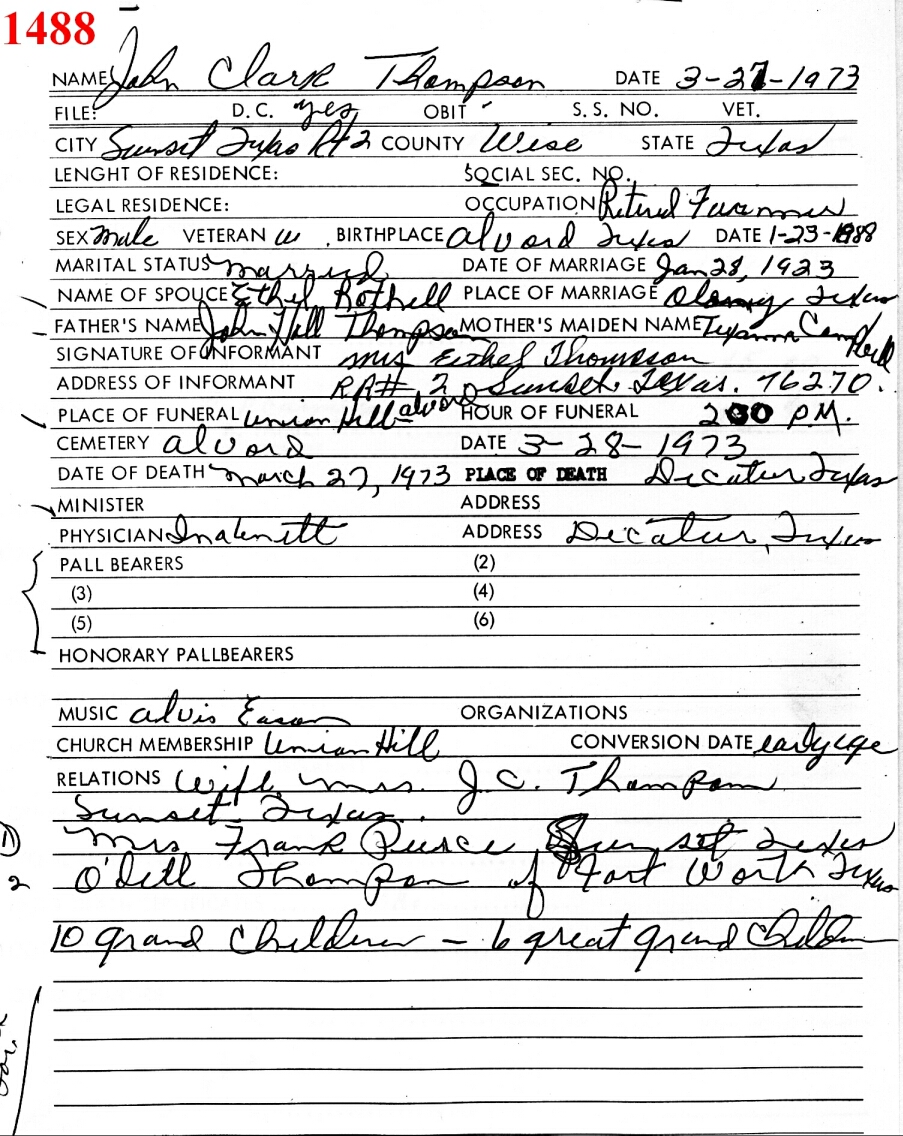 1488
NAME John Clark Thompson DATE 3-27-1973
FILE: D.C. yes OBIT S. S. NO. VET.
CITY Sunset Texas Rt 2 COUNTY Wise STATE Texas
LENGHT OF RESIDENCE: SOCIAL SEC. NO.
LEGAL RESIDENCE: OCCUPATION Retired Farmer
SEX Male VETERAN W BIRTHPLACE Alvord Texas DATE 1-23-1888
MARITAL STATUS married DATE OF MARRIAGE Jan 28, 1923
NAME OF SPOUCE Ethel Rothell PLACE OF MARRIAGE Olney Texas
FATHER'S NAME John Hall Thompson MOTHER'S MAIDEN NAME Texanna
SIGNATURE OF INFORMANT Mrs Eithel Thompson
ADDRESS OF INFORMANT RR# 2 Sunset Texas. 76270.
PLACE OF FUNERAL Union Hill Alvord HOUR OF FUNERAL 2 00 P.M.
CEMETERY Alvord DATE 3-28-1973
DATE OF DEATH March 27, 1973 PLACE OF DEATH Decatur, Texas
MINISTER ADDRESS
PHYSICIAN ADDRESS Decatur, Texas
PALL BEARERS (2)
(3) (4)
(5) (6)
HONORARY PALLBEARERS
MUSIC Alvis Eason ORGANIZATIONS
CHURCH MEMBERSHIP Union Hill CONVERSION DATE early age
RELATIONS Wife, Mrs. J.C. Thompson
Sunset Texas.
1 Mrs Frank Pierce Sunset Texas
2 O'dell Thompson of Fort Worth Texas
10 grand Children - 6 great grand Children